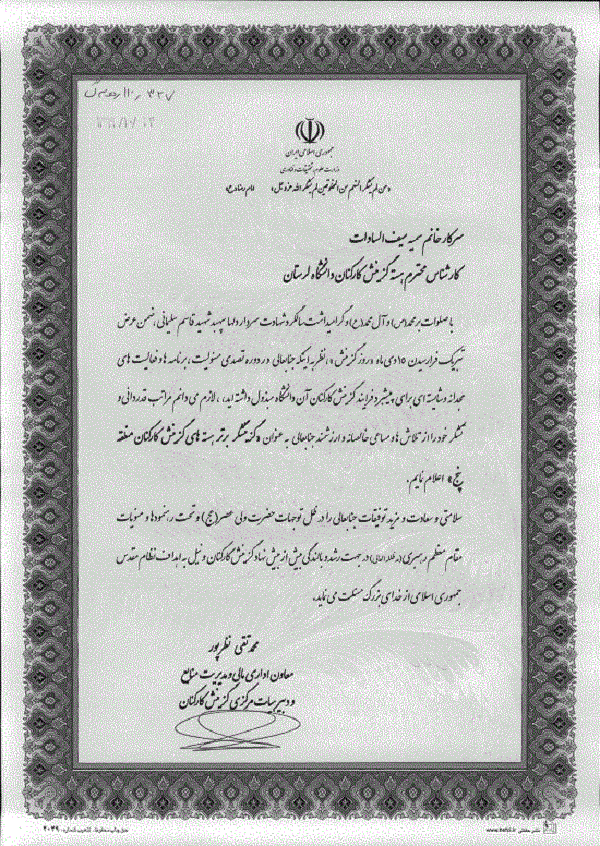 جمهوری اسلامی ایران
وزارت علوم، تحقیقات و فناوری
«من لم یشکر المنعم من المخلوقین لم یشکر الله عزوجل» امام رضا(ع)
سرکار خانم سمیه سیف السادات
کارشناس محترم هسته گزینش کارکنان دانشگاه لرستان
با صلوات بر محمد(ص) و آل محمد(ع) و گرامیداشت سالگرد شهادت سردار دلها سپهبد شهید قاسم سلیمانی، ضمن عرض
تبریک فرا رسیدن ۱۵ دی ماه «روز گزینش»، نظر به اینکه جنابعالی در دوره تصدی مسئولیت، برنامه ها و فعالیت های
مجدانه و شایسته ای برای پیشبرد فرایند گزینش کارکنان آن دانشگاه مبذول داشته اید، لازم می دانم مراتب قدردانی و
تشکر خود را از تلاش ها و مساعی خالصانه و ارزشمند جنابعالی به عنوان «گزینشگر برتر هسته های گزینش کارکنان منطقه
پنج» اعلام نمایم.
سلامتی و سعادت و مزید توفیقات جنابعالی را در ظل توجهات حضرت ولی عصر(عج) و تحت رهنمودها و منویات
مقام معظم رهبری (مد ظله العالی) در جهت رشد و بالندگی بیش از پیش نهاد گزینش کارکنان و نیل به اهداف نظام مقدس
جمهوری اسلامی از خدای بزرگ مسئلت می نماید.
محمد تقی نظرپور
معاون اداری، مالی و مدیریت منابع
و دبیر هیات مرکزی گزینش کارکنان
www.hafez.ir
حق چاپ محفوظ
۲۰۳۹